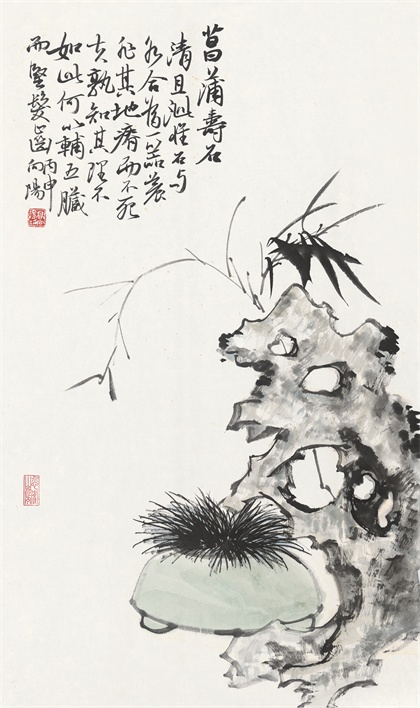 菖蒲壽石
清且泚惟石与
水合為一器養
非其地瘠而不死
夫孰知其理不
如此何以輔五臟
而堅髮齒 丙申
向陽